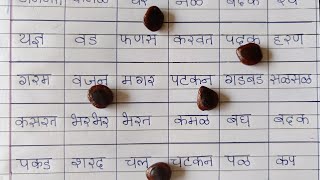 नळ
यज्ञ वड फणस करवत पदक हरण
गरम वजन मगर पटकन गडबड सळसळ
कसरत भरभर भरत कमळ बघ बदक
पकड शरद चल चटकन पळ कप